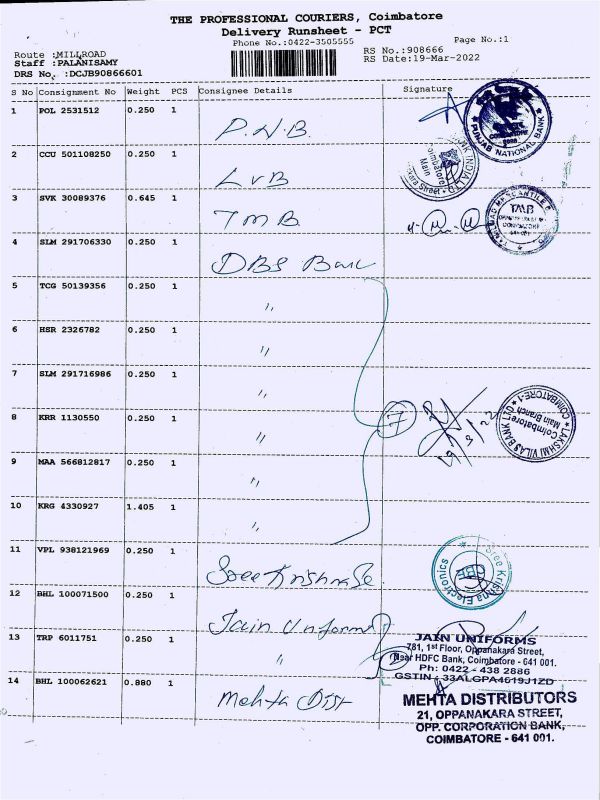 THE PROFESSIONAL COURIERS, Coimbatore
Delivery Runsheet - PCT
Phone No.:0422-3505555
Page No.:1
Route :MILLROAD
RS No.:908666
Staff :PALANISAMY
RS Date:19-Mar-2022
DRS No. :DCJB90866601
S No Consignment No Weight PCS Consignee Details Signature
1 POL 2531512 0.250 1 P.N.B.
PUNJAB NATIONAL BANK
2 CCU 501108250 0.250 1 LVB
Coimbatore
Main
3 SVK 30089376 0.645 1 TMB
TMB
4 SLM 291706330 0.250 1 DBS Bank
5 TCG 50139356 0.250 1 "
6 HSR 2326782 0.250 1 "
7 SLM 291716986 0.250 1 "
8 KRR 1130550 0.250 1 " 7
19/3/22
LAKSHMI VILAS BANK LTD
COIMBATORE-1
Coimbatore
Main Branch
9 MAA 566812817 0.250 1 "
10 KRG 4330927 1.405 1 "
11 VPL 938121969 0.250 1 Sree Krishna Ele
Sree Krishna Electronics
12 BHL 100071500 0.250 1 Jain Uniforms
13 TRP 6011751 0.250 1 "
JAIN UNIFORMS
781, 1st Floor, Oppanakara Street,
Near HDFC Bank, Coimbatore - 641 001.
Ph: 0422 - 438 2886
GSTIN : 33ALGPA4619J1ZD
14 BHL 100062621 0.880 1 Mehta Dist
MEHTA DISTRIBUTORS
21, OPPANAKARA STREET,
OPP. CORPORATION BANK,
COIMBATORE - 641 001.